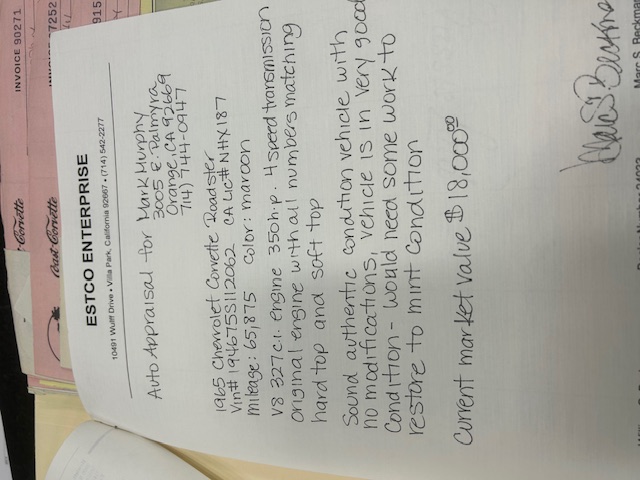 INVOICE 90271
Corvette
7252
Coast Corvette
915
ESTCO ENTERPRISE
10491 Wulff Drive • Villa Park, California 92667 • (714) 542-2277
Auto Appraisal for Mark Murphy
3005 E. Palmyra
Orange, CA 92669
714) 744-0947
1965 Chevrolet Corvette Roadster
Vin# 194675S112062 CA Lic# NHX187
Mileage: 65,875 Color: maroon
V8 327 c.i. engine 350 h.p. 4 speed transmission
original engine with all numbers matching
hard top and soft top
Sound authentic condition vehicle with
no modifications, vehicle is in very good
Condition - would need some work to
restore to mint condition
Current market value $18,000.00
Marc S. Beckman